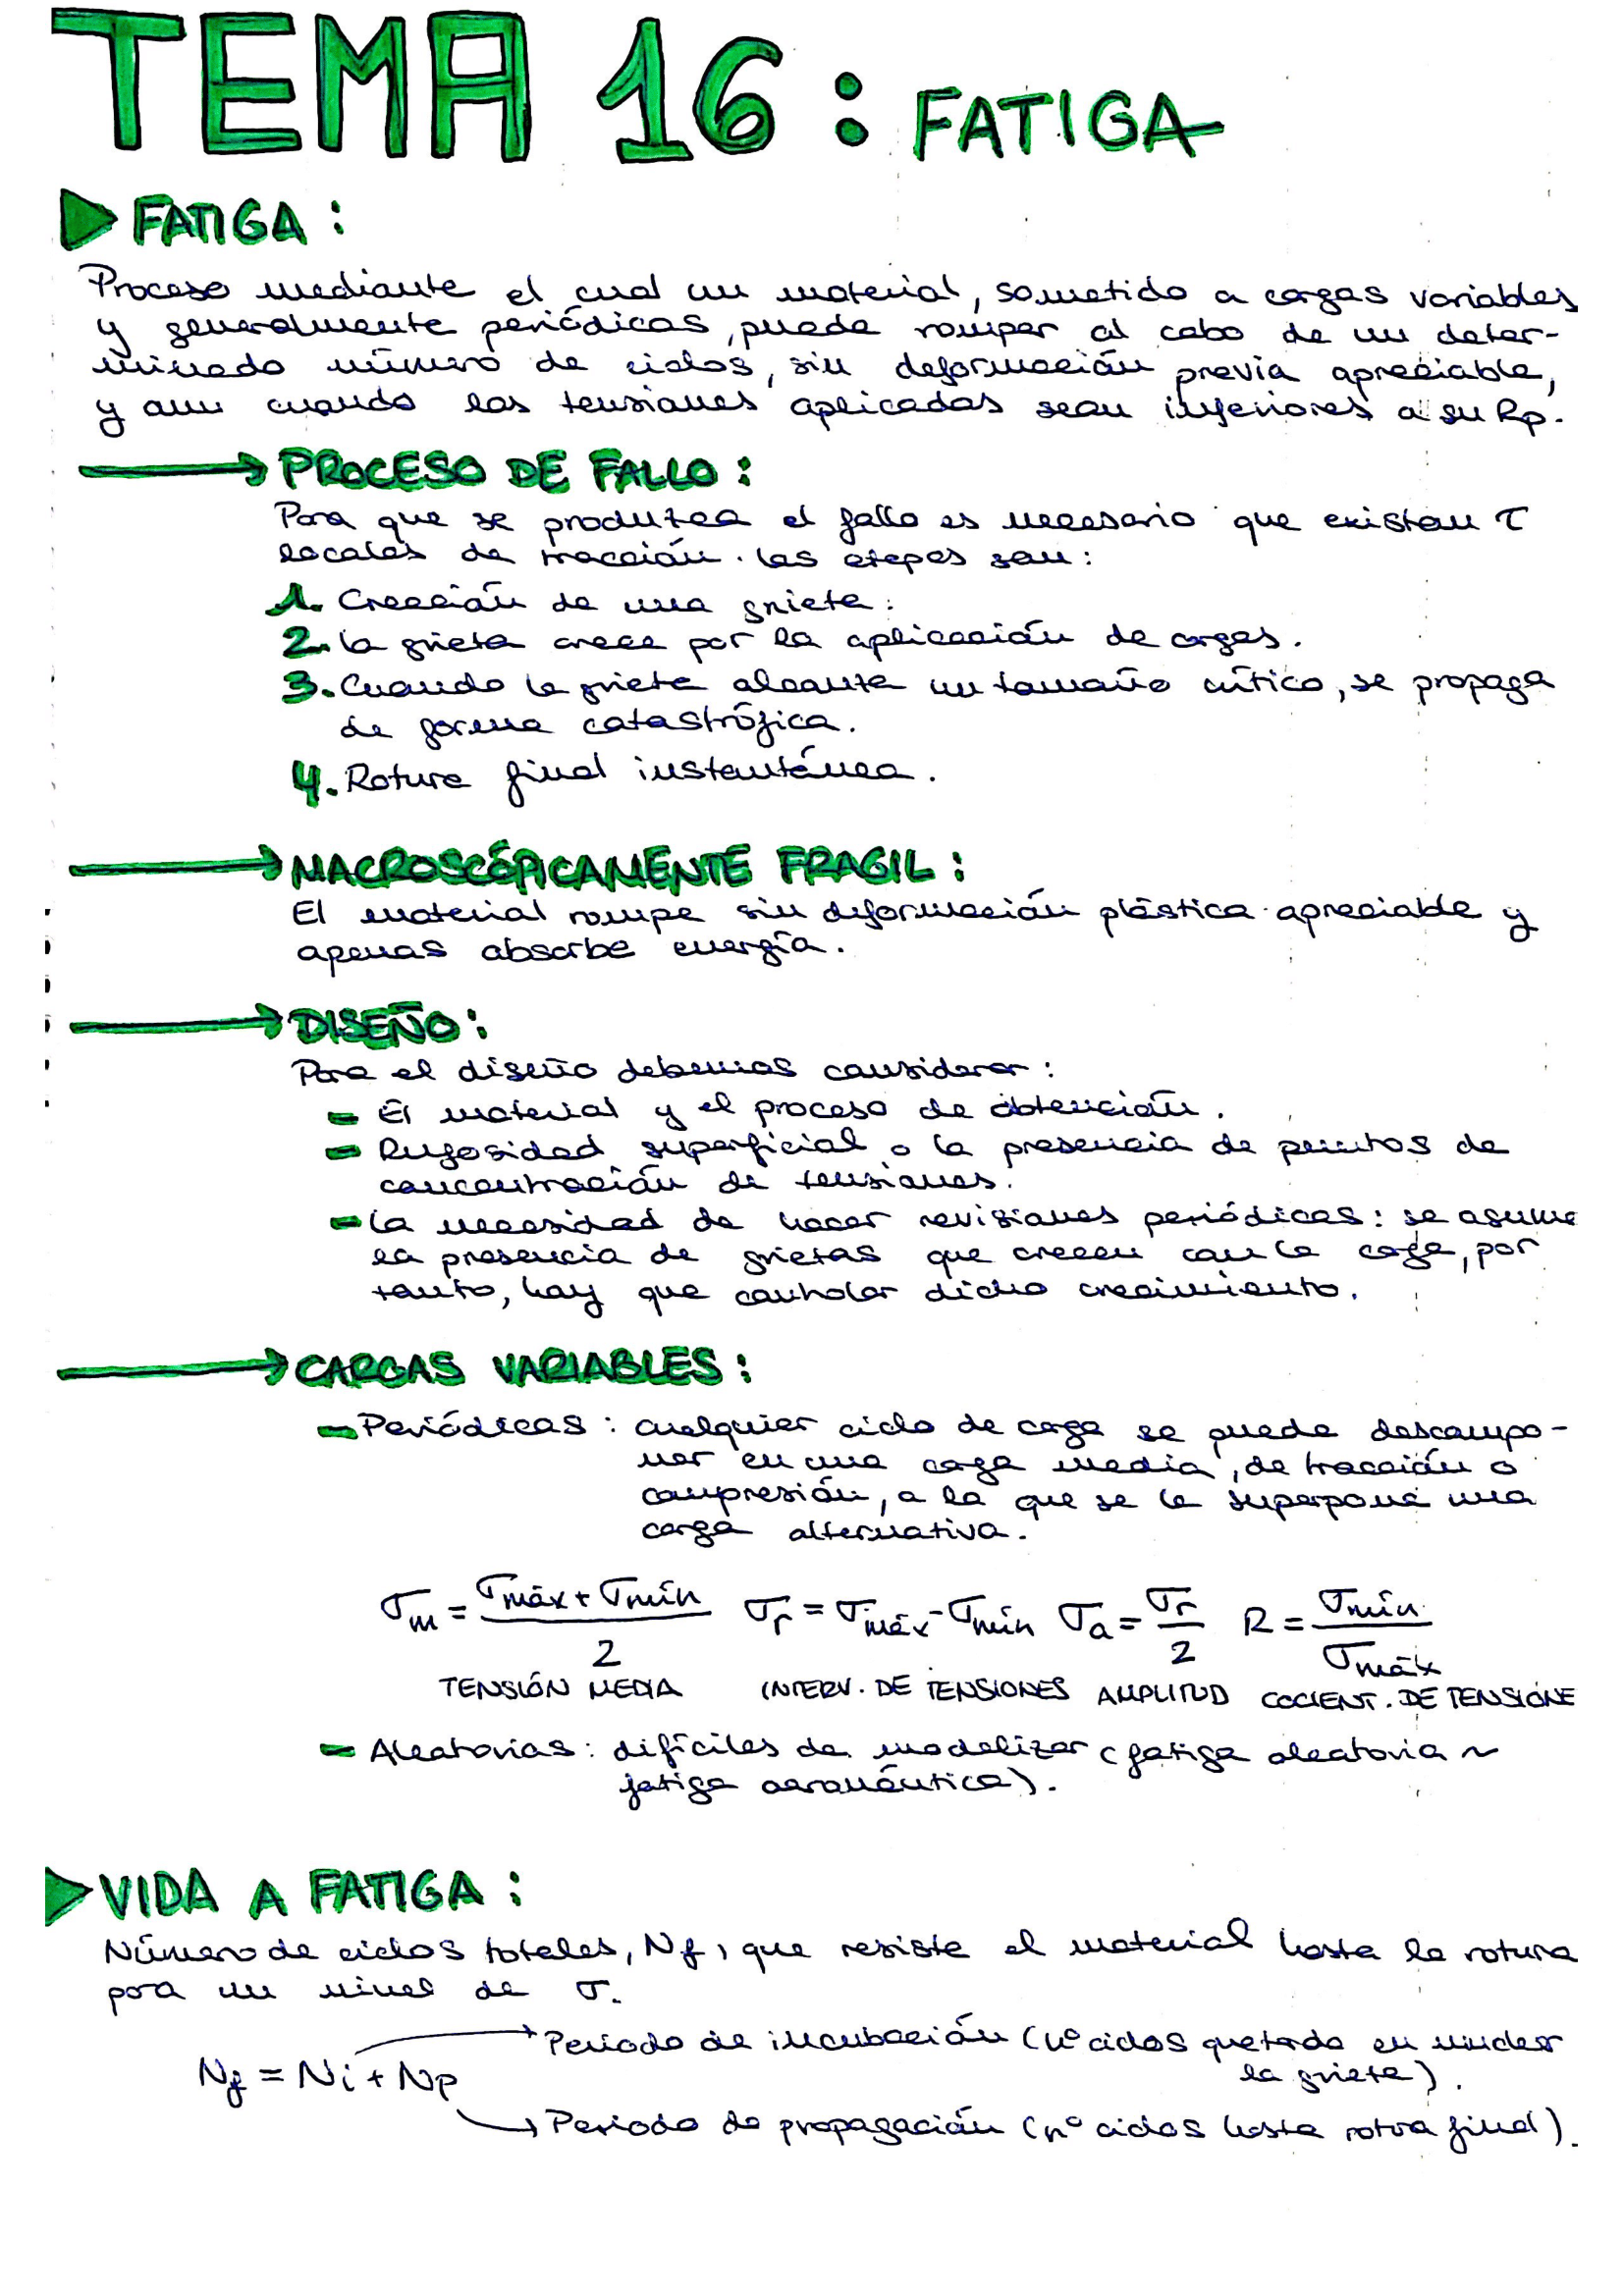 TEMA 16: FATIGA
FATIGA:
Proceso mediante el cual un material, sometido a cargas variables
y generalmente periódicas, puede romper al cabo de un deter-
minado número de ciclos, sin deformación previa apreciable,
y aun cuando las tensiones aplicadas sean inferiores a su Rp.
→ PROCESO DE FALLO:
Para que se produzca el fallo es necesario que existan τ
locales de tracción. Las etapas son:
1. Creación de una grieta.
2. La grieta crece por la aplicación de cargas.
3. Cuando la grieta alcanza un tamaño crítico, se propaga
de forma catastrófica.
4. Rotura final instantánea.
→ MACROSCÓPICAMENTE FRAGIL:
El material rompe sin deformación plástica apreciable y
apenas absorbe energía.
→ DISEÑO:
Para el diseño debemos considerar:
- El material y el proceso de obtención.
- Rugosidad superficial o la presencia de puntos de
concentración de tensiones.
- La necesidad de hacer revisiones periódicas: se asume
la presencia de grietas que crecen con la carga, por
tanto, hay que controlar dicho crecimiento.
→ CARGAS VARIABLES:
- Periódicas: cualquier ciclo de carga se puede descompo-
ner en una carga media, de tracción o
compresión, a la que se le superpone una
carga alternativa.
σm = (σmáx + σmín)/2 σr = σmáx - σmín σa = σr/2 R = σmín/σmáx
TENSIÓN MEDIA INTERV. DE TENSIONES AMPLITUD COCIENT. DE TENSIONE
- Aleatorias: difíciles de modelizar (fatiga aleatoria ~
fatiga aeronáutica).
VIDA A FATIGA:
Número de ciclos totales, Nf, que resiste el material hasta la rotura
para un nivel de σ.
→ Periodo de incubación (nº ciclos que tarda en nuclear
la grieta).
Nf = Ni + Np
→ Periodo de propagación (nº ciclos hasta rotura final).